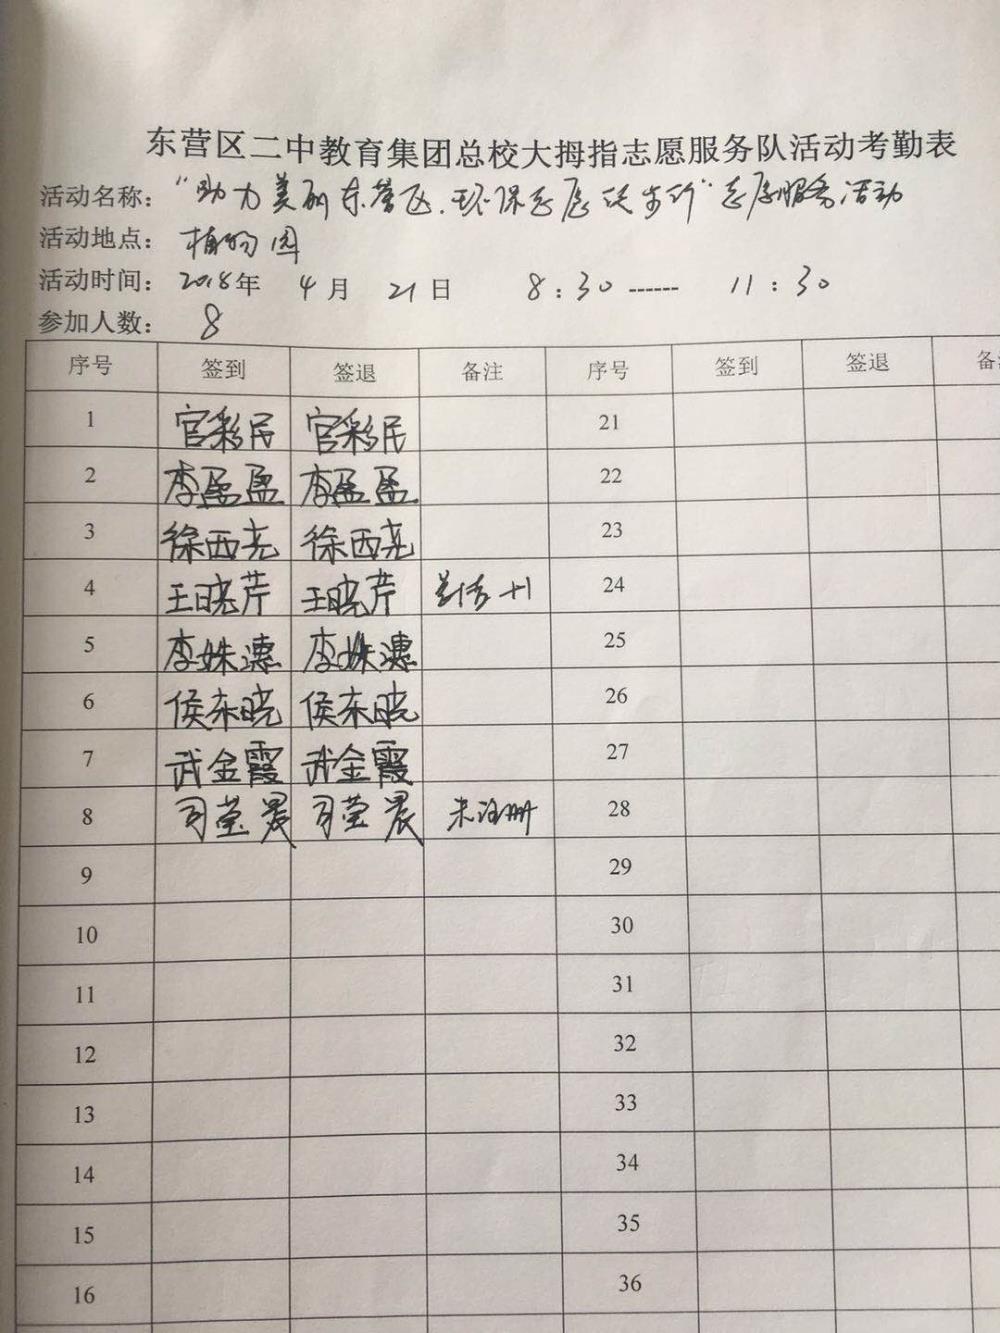 东营区二中教育集团总校大拇指志愿服务队活动考勤表
活动名称：“助力美丽东营区.环保志愿徒步行”志愿服务活动
活动地点：植物园
活动时间：2018年 4月 21日 8:30 ------ 11:30
参加人数：8
序号 签到 签退 备注 序号 签到 签退
1 官彩民 官彩民 21
2 李盈盈 李盈盈 22
3 徐西尧 徐西尧 23
4 王晓芹 王晓芹 24
5 李姝潓 李姝潓 25
6 侯东晓 侯东晓 26
7 武金霞 武金霞 27
8 司莹晨 司莹晨 未注册 28
9 29
10 30
11 31
12 32
13 33
14 34
15 35
16 36